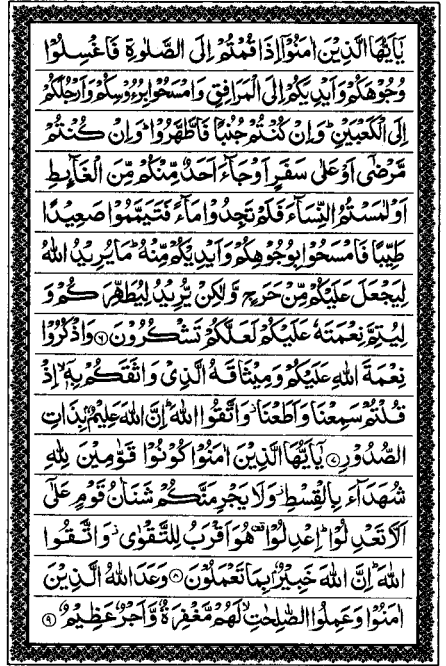 يٰۤاَيُّهَا الَّذِيْنَ اٰمَنُوْۤا اِذَا قُمْتُمْ اِلَى الصَّلٰوةِ فَاغْسِلُوْا
وُجُوْهَكُمْ وَاَيْدِيَكُمْ اِلَى الْمَرَافِقِ وَامْسَحُوْا بِرُءُوْسِكُمْ وَاَرْجُلَكُمْ
اِلَى الْكَعْبَيْنِ ؕ وَاِنْ كُنْتُمْ جُنُبًا فَاطَّهَّرُوْا ؕ وَاِنْ كُنْتُمْ
مَّرْضٰۤى اَوْ عَلٰى سَفَرٍ اَوْ جَآءَ اَحَدٌ مِّنْكُمْ مِّنَ الْغَآئِطِ
اَوْ لٰمَسْتُمُ النِّسَآءَ فَلَمْ تَجِدُوْا مَآءً فَتَيَمَّمُوْا صَعِيْدًا
طَيِّبًا فَامْسَحُوْا بِوُجُوْهِكُمْ وَاَيْدِيْكُمْ مِّنْهُ ؕ مَا يُرِيْدُ اللّٰهُ
لِيَجْعَلَ عَلَيْكُمْ مِّنْ حَرَجٍ وَّلٰكِنْ يُّرِيْدُ لِيُطَهِّرَكُمْ وَ
لِيُتِمَّ نِعْمَتَهٗ عَلَيْكُمْ لَعَلَّكُمْ تَشْكُرُوْنَ ۶ وَاذْكُرُوْا
نِعْمَةَ اللّٰهِ عَلَيْكُمْ وَمِيْثَاقَهُ الَّذِيْ وَاثَقَكُمْ بِهٖۤ ۙ اِذْ
قُلْتُمْ سَمِعْنَا وَاَطَعْنَا ؗ وَاتَّقُوا اللّٰهَ ؕ اِنَّ اللّٰهَ عَلِيْمٌۢ بِذَاتِ
الصُّدُوْرِ ۷ يٰۤاَيُّهَا الَّذِيْنَ اٰمَنُوْا كُوْنُوْا قَوّٰمِيْنَ لِلّٰهِ
شُهَدَآءَ بِالْقِسْطِ ؗ وَلَا يَجْرِمَنَّكُمْ شَنَاٰنُ قَوْمٍ عَلٰۤى
اَلَّا تَعْدِلُوْا ؕ اِعْدِلُوْا ۟ هُوَ اَقْرَبُ لِلتَّقْوٰى ؗ وَاتَّقُوا
اللّٰهَ ؕ اِنَّ اللّٰهَ خَبِيْرٌۢ بِمَا تَعْمَلُوْنَ ۸ وَعَدَ اللّٰهُ الَّذِيْنَ
اٰمَنُوْا وَعَمِلُوا الصّٰلِحٰتِ ۙ لَهُمْ مَّغْفِرَةٌ وَّاَجْرٌ عَظِيْمٌ ۹